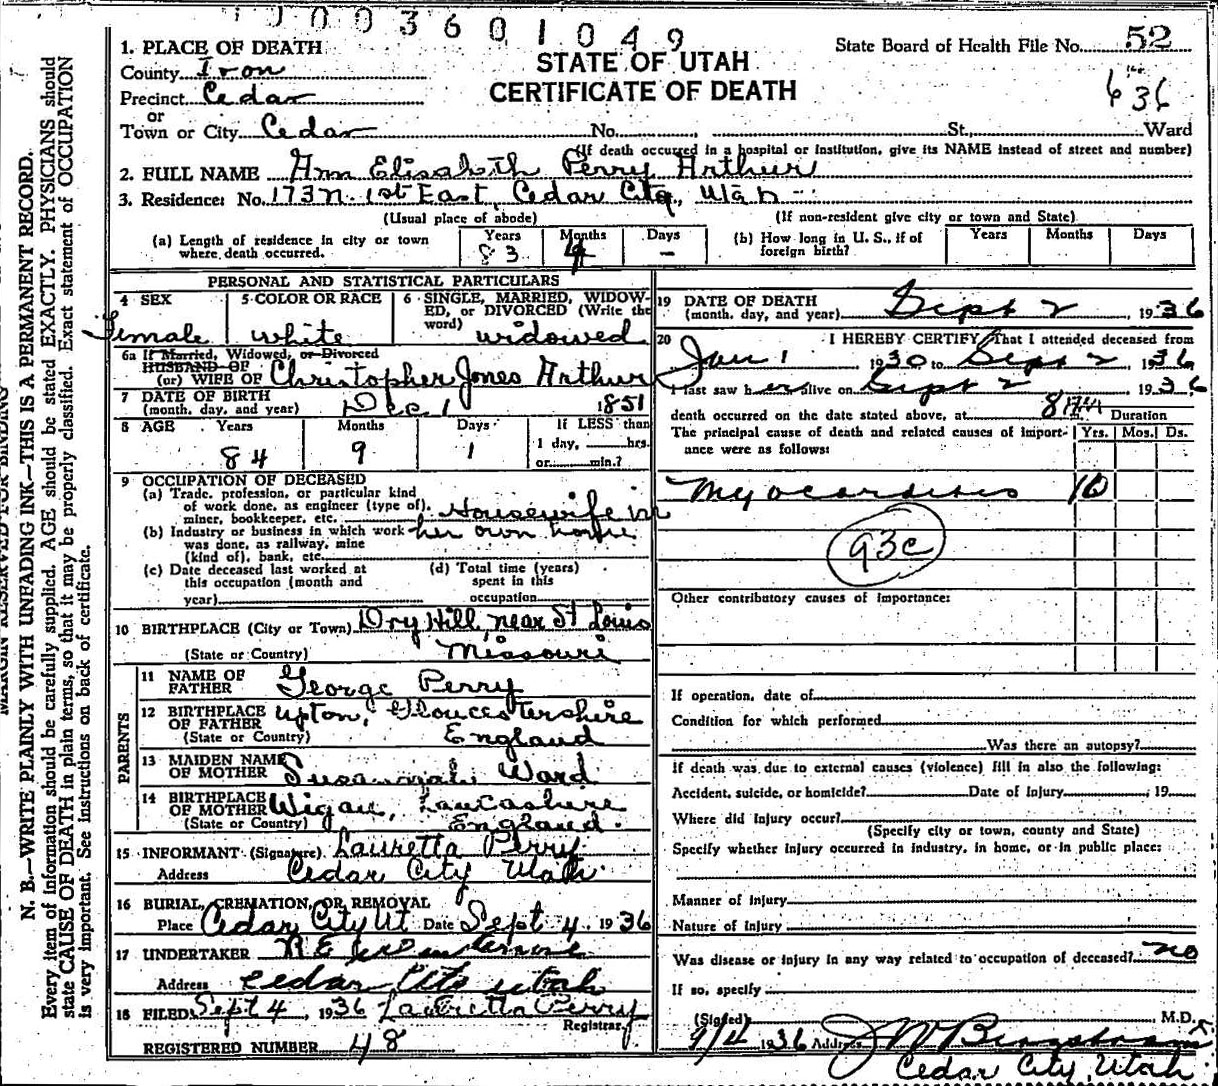 1003601049
State Board of Health File No. 52
1. PLACE OF DEATH
STATE OF UTAH
CERTIFICATE OF DEATH
County Iron
Precinct Cedar
or
Town or City Cedar No. St., Ward
636
(If death occurred in a hospital or institution, give its NAME instead of street and number)
2. FULL NAME Ann Elisabeth Perry Arthur
3. Residence: No. 173 N. 1st East, Cedar City, Utah
(Usual place of abode) (If non-resident give city or town and State)
(a) Length of residence in city or town where death occurred. Years 83 Months 4 Days - (b) How long in U. S., if of foreign birth? Years Months Days
PERSONAL AND STATISTICAL PARTICULARS
4 SEX Female
5 COLOR OR RACE white
6 SINGLE, MARRIED, WIDOWED, or DIVORCED (Write the word) widowed
6a If Married, Widowed, or Divorced
HUSBAND OF
(or) WIFE OF Christopher Jones Arthur
7 DATE OF BIRTH
(month, day, and year) Dec 1 1851
8 AGE Years 84 Months 9 Days 1 If LESS than
1 day, hrs.
or min.?
9 OCCUPATION OF DECEASED
(a) Trade, profession, or particular kind
of work done, as engineer (type of),
miner, bookkeeper, etc. Housewife in
(b) Industry or business in which work her own home
was done, as railway, mine
(kind of), bank, etc.
(c) Date deceased last worked at
this occupation (month and
year)
(d) Total time (years)
spent in this
occupation
10 BIRTHPLACE (City or Town) Dry Hill, near St Louis
(State or Country) Missouri
PARENTS
11 NAME OF
FATHER George Perry
12 BIRTHPLACE
OF FATHER Upton, Gloucestershire
(State or Country) England
13 MAIDEN NAME
OF MOTHER Susannah Ward
14 BIRTHPLACE
OF MOTHER Wigan, Lancashire
(State or Country) England
15 INFORMANT (Signature) Lauretta Perry
Address Cedar City Utah
16 BURIAL, CREMATION, OR REMOVAL
Place Cedar City Ut Date Sept 4, 1936
17 UNDERTAKER
Address Cedar City Utah
18 FILED Sept 4, 1936 Lauretta Perry
Registrar
REGISTERED NUMBER 48
19 DATE OF DEATH
(month, day, and year) Sept 2, 1936
20 I HEREBY CERTIFY, That I attended deceased from
Jan 1 1930 to Sept 2, 1936
I last saw her alive on Sept 2 1936
death occurred on the date stated above, at 8
Duration
The principal cause of death and related causes of importance were as follows: Yrs. Mos. Ds.
Myocarditis 10
93c
Other contributory causes of importance:
If operation, date of
Condition for which performed
Was there an autopsy?
If death was due to external causes (violence) fill in also the following:
Accident, suicide, or homicide? Date of injury , 19
Where did injury occur?
(Specify city or town, county and State)
Specify whether injury occurred in industry, in home, or in public place:
Manner of injury
Nature of injury
Was disease or injury in any way related to occupation of deceased? no
If so, specify
(Signed) M.D.
9/4 1936 Address
Cedar City, Utah
MARGIN RESERVED FOR BINDING
N. B.—WRITE PLAINLY WITH UNFADING INK—THIS IS A PERMANENT RECORD.
Every item of information should be carefully supplied. AGE should be stated EXACTLY. PHYSICIANS should
state CAUSE OF DEATH in plain terms, so that it may be properly classified. Exact statement of OCCUPATION
is very important. See instructions on back of certificate.